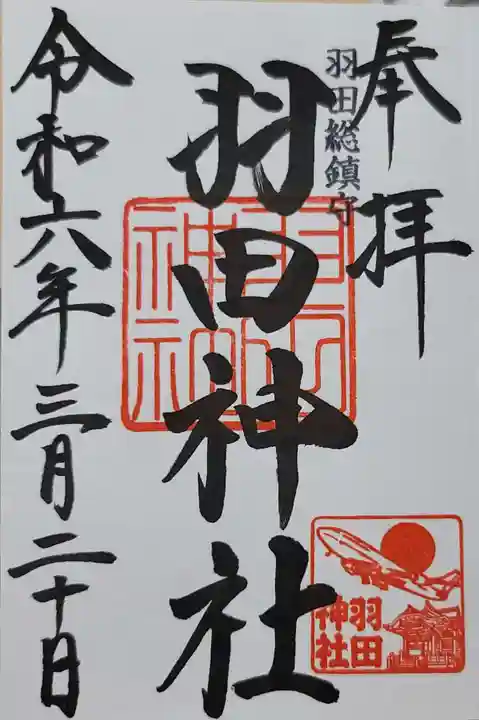 奉拝
羽田総鎮守
羽田神社
羽田神社
羽田
神社
令和六年三月二十日